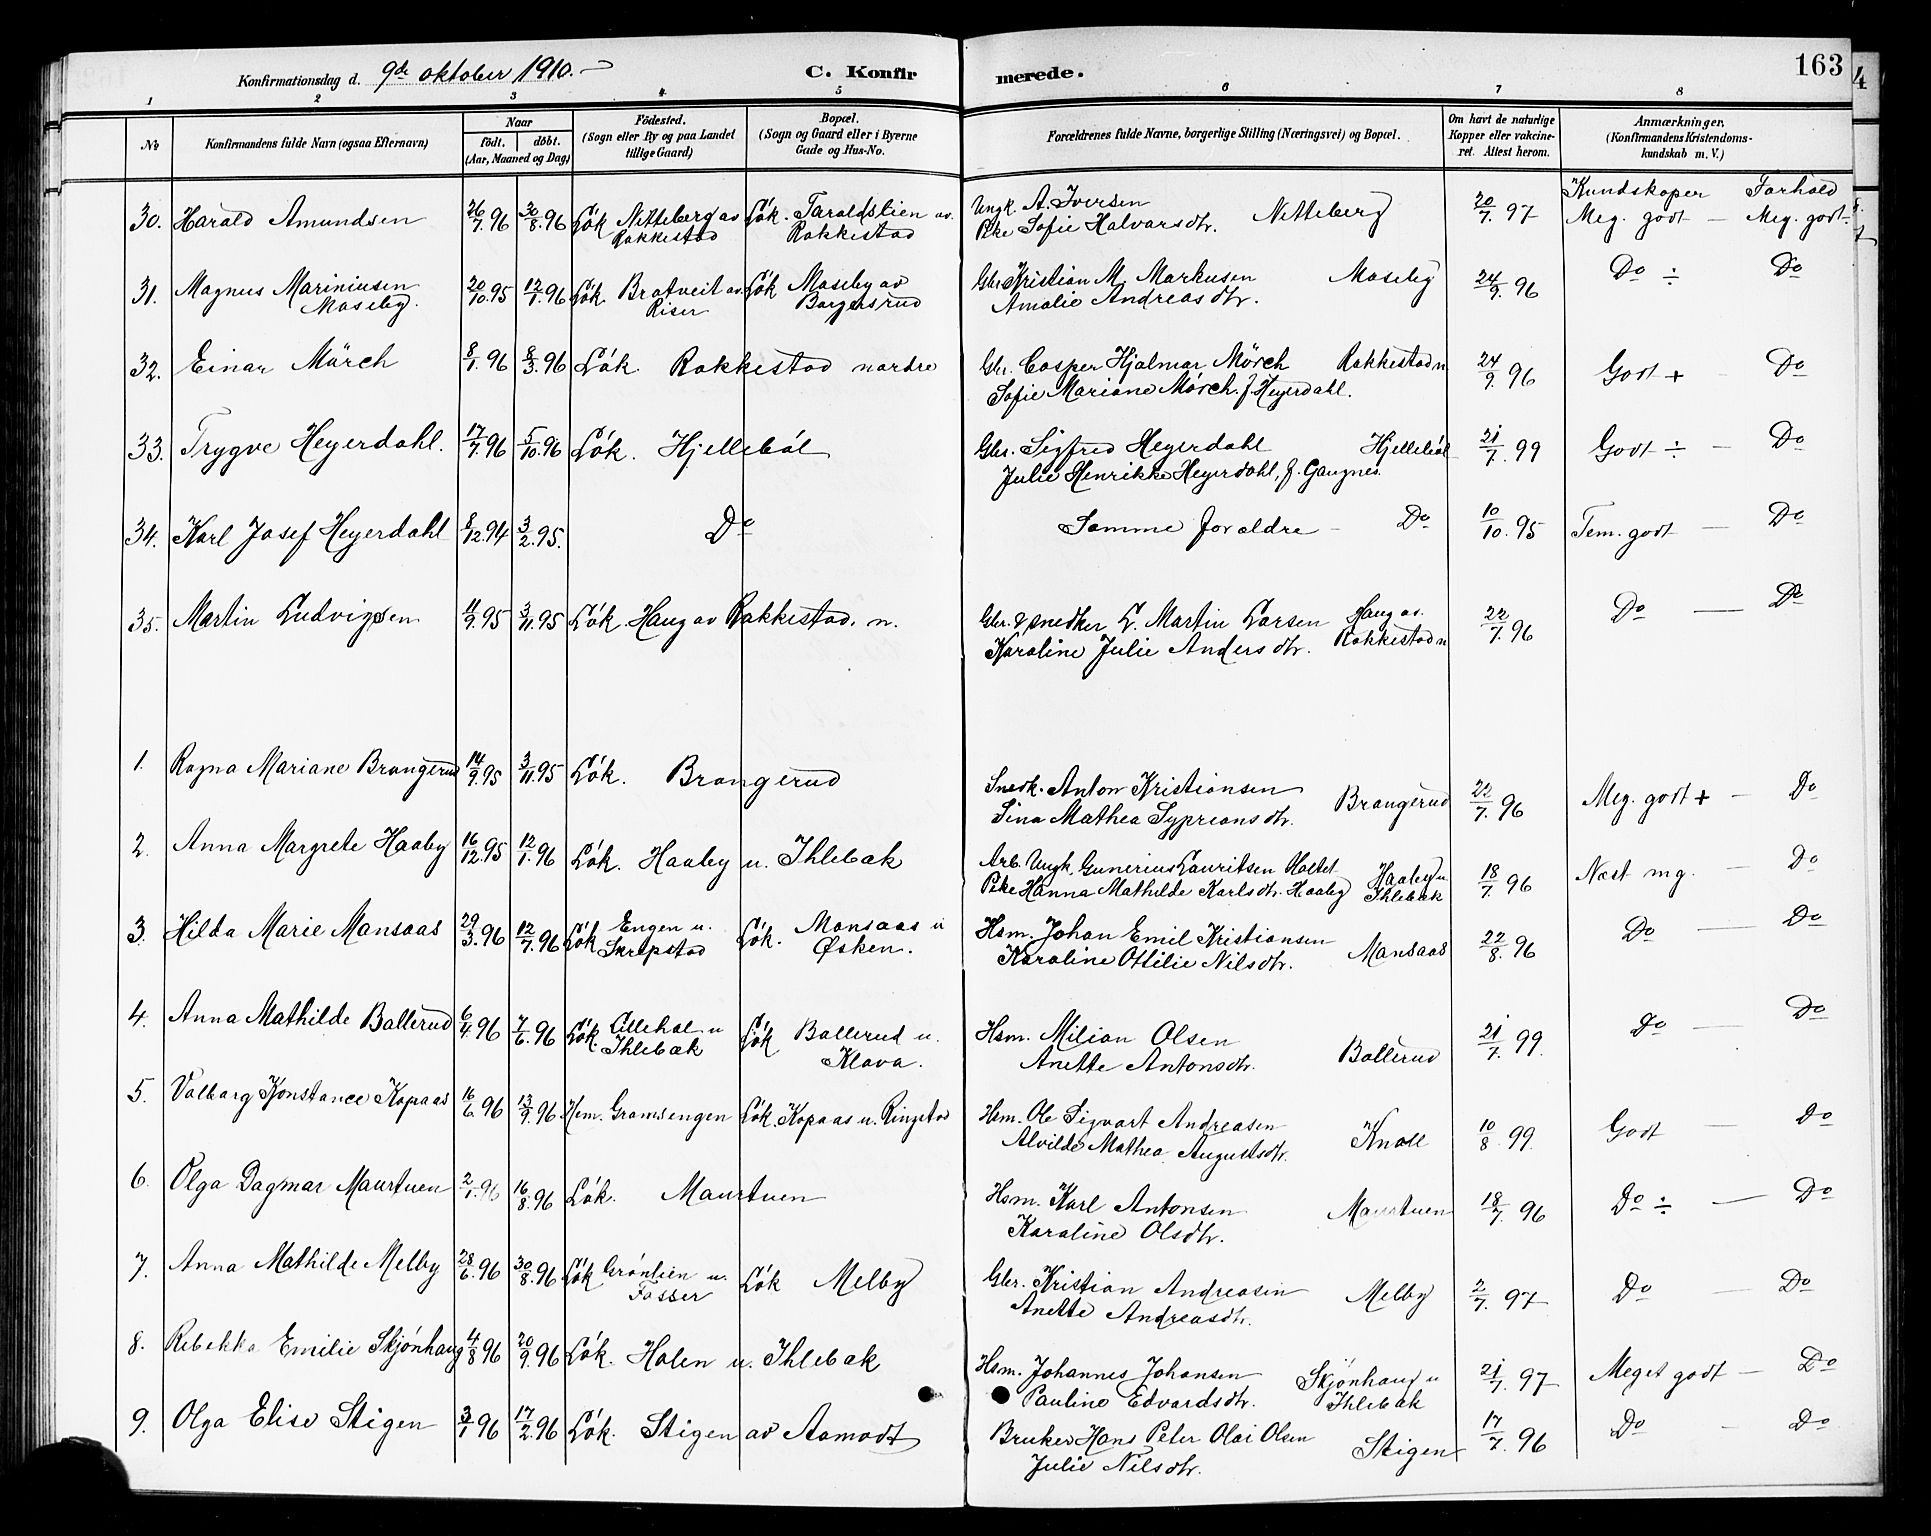 163
Konfirmationsdag d. 9de oktober 1910.
C. Konfirmerede.
1 2 3 4 5 6 7 8
No
Konfirmandens fulde Navn (ogsaa Efternavn)
Naar
födt. döbt.
(Aar, Maaned og Dag)
Födested.
(Sogn eller By og paa Landet
tillige Gaard)
Bopæl.
(Sogn og Gaard eller i Byerne
Gade og Hus-No.
Forældrenes fulde Navne, borgerlige Stilling (Næringsvei) og Bopæl.
Om havt de naturlige
Kopper eller vakcine-
ret. Attest herom.
Anmærkninger.
(Konfirmandens Kristendoms-
kundskab m. V.)
Kundskaper Forhold
30. Harald Amundsen 26/7.96 30/8.96 Lök. Netteberg av Rakkestad Lök. Taraldslien av. Rakkestad Ungk. A. Iversen Netteberg 20/7.97 Meg. godt — Meg. godt
Pike Sofie Halvarsdtr.
31. Magnus Mariniusen 20/10.95 12/1.96 Lök. Bratveit av. Riser Lök Moseby av Borgersrud Gbr. Kristian M. Markusen Moseby 24/9.96 Do ÷ Do
Moseby. Amalie Andreasdtr.
32. Einar Mörch 8/1.96 8/3.96 Lök. Rakkestad nordre Gbr. Casper Hjalmar Mörch Rakkestad n 24/9.96 Godt + Do
Sofie Mariane Mörch. f. Heyerdahl.
33. Trygve Heyerdahl. 17/7.96 5/10.96 Lök. Hjelleböl Gbr. Sigfred Heyerdahl Hjelleböl 21/7.99 Godt ÷ — Do
Julie Henrikke Heyerdahl, f. Gaugnes.
34. Karl Josef Heyerdahl 8/12.94 3/2.95. Do Samme foraldre — Do 10/10.95 Tem. godt — Do
35. Martin Ludvigsen 11/9.95 3/11.95 Lök. Haug av Rakkestad. n. Gbr. & snedker L. Martin Larsen Haug av. Rakkestad n 22/7.96 Do — Do
Karoline Julie Andersdtr.
1. Ragna Mariane Brangerud 14/9.95 3/11.95 Lök. Brangerud Snedk. Anton Kristiansen Brangerud 22/7.96 Meg. godt + — Do
Sina Mathea Sypriansdtr.
2. Anna Margrete Haaby 16/12.95 12/1.96 Lök. Haaby u. Ihlebæk Arb. Ungk. Gunerius Lauritsen Holtet Haaby u Ihlebæk 18/7.96 Næst mg. — Do
Pike Hanna Mathilde Karlsdtr. Haaby
3. Hilda Marie Mansaas 29/3.96 12/7.96 Lök Engen u. Skrepstad Lök. Mansaas u Øsken. Hsm. Johan Emil Kristiansen Mansaas 22/8.96 Do — Do
Karoline Ottilie Nilsdtr.
4. Anna Mathilde Ballerud 6/4.96 7/6.96 Lök. Lillehol u Ihlebæk Lök Ballerud u. Klava. Hsm. Milian Olsen Ballerud 21/7.99. Do — Do
Anette Antonsdtr.
5. Valborg Konstance Kopaas 16/6.96 13/9.96. Hem. Gramsengen Lök. Kopaas u. Ringstad Hsm. Ole Sigvart Andreasen Knall 10/8.99. Godt — Do
Alvilde Mathea Augustsdtr.
6. Olga Dagmar Maurtuen 2/1.96 16/8.96 Lök. Maurtuen Hsm. Karl Antonsen Maurtuen 18/7.96 Do ÷ — Do
Karoline Olsdtr.
7. Anna Mathilde Melby 28/6.96 30/8.96 Lök Grönlien u. Fosser Lök Melby Gbr. Kristian Andreasen Melby 2/7.97 Do — Do
Anette Andreasdtr.
8. Rebekka Emilie Skjönhaug 4/8 96 20/9.96 Lök. Holen u. Ihlebæk Hsm. Johannes Johansen Skjönhaug u Ihlebæk 21/7.97 Meget godt — Do
Pauline Edvardsdtr.
9. Olga Elise Stigen 3/1 96 17/2.96 Lök. Stigen av Aamodt Bruker Hans Peter Olai Olsen Stigen 17/7.96 Do — Do
Julie Nilsdtr.